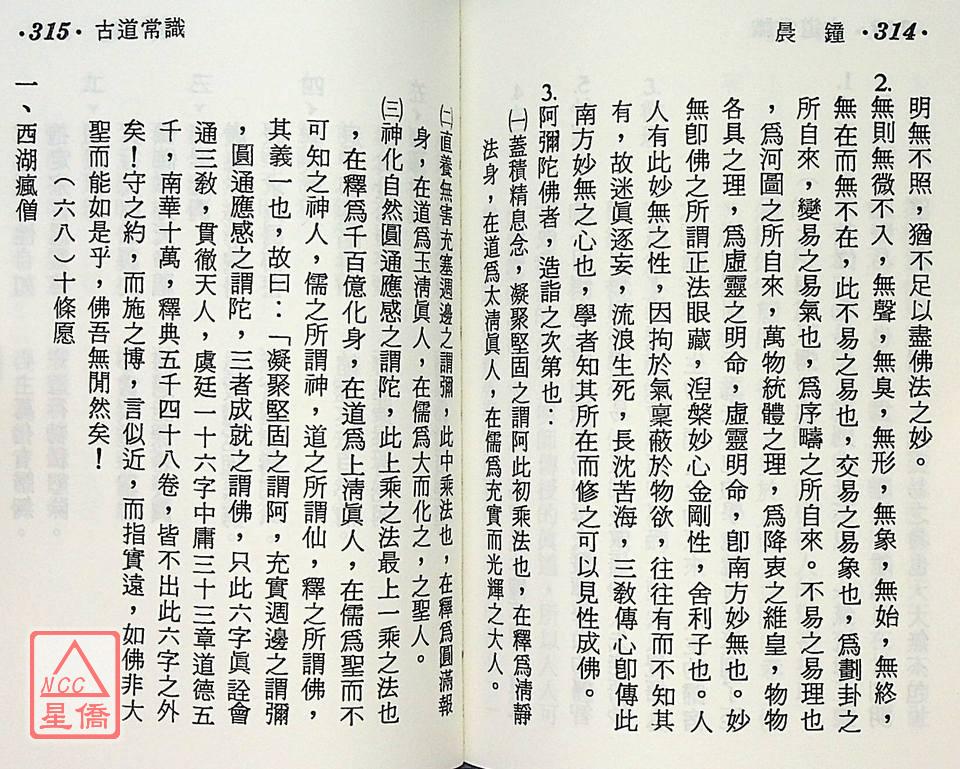 晨鐘 ·314·
明無不照，猶不足以盡佛法之妙。
2.無則無微不入，無聲，無臭，無形，無象，無始，無終，
無在而無不在，此不易之易也，交易之易象也，爲劃卦之
所自來，變易之易氣也，爲序疇之所自來。不易之易理也
，爲河圖之所自來，萬物統體之理，爲降衷之維皇，物物
各具之理，爲虛靈之明命，虛靈明命，卽南方妙無也。妙
無卽佛之所謂正法眼藏，湼槃妙心金剛性，舍利子也。人
人有此妙無之性，因拘於氣稟蔽於物欲，往往有而不知其
有，故迷眞逐妄，流浪生死，長沈苦海，三敎傳心卽傳此
南方妙無之心也，學者知其所在而修之可以見性成佛。
3.阿彌陀佛者，造詣之次第也：
㈠蓋積精息念，凝聚堅固之謂阿此初乘法也，在釋爲淸靜
法身，在道爲太淸眞人，在儒爲充實而光輝之大人。
·315· 古道常識
㈡直養無害充塞週邊之謂彌，此中乘法也，在釋爲圓滿報
身，在道爲玉淸眞人，在儒爲大而化之，之聖人。
㈢神化自然圓通應感之謂陀，此上乘之法最上一乘之法也
，在釋爲千百億化身，在道爲上淸眞人，在儒爲聖而不
可知之神人，儒之所謂神，道之所謂仙，釋之所謂佛，
其義一也，故曰：「凝聚堅固之謂阿，充實週邊之謂彌
，圓通應感之謂陀，三者成就之謂佛，只此六字眞詮會
通三敎，貫徹天人，虞廷一十六字中庸三十三章道德五
千，南華十萬，釋典五千四十八卷，皆不出此六字之外
矣！守之約，而施之博，言似近，而指實遠，如佛非大
聖而能如是乎，佛吾無閒然矣！
（六八）十條愿
一、西湖瘋僧
NCC
星僑